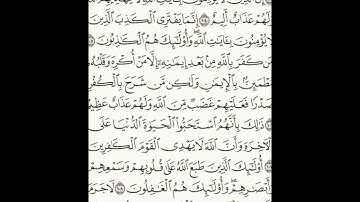 وَلَهُمْ عَذَابٌ أَلِيمٌ ١٠٤ إِنَّمَا يَفْتَرِي الْكَذِبَ الَّذِينَ
لَا يُؤْمِنُونَ بِـَٔايَـٰتِ اللَّهِ وَأُولَـٰٓئِكَ هُمُ الْكَـٰذِبُونَ ١٠٥
مَن كَفَرَ بِاللَّهِ مِنۢ بَعْدِ إِيمَـٰنِهِۦٓ إِلَّا مَنْ أُكْرِهَ وَقَلْبُهُ
مُطْمَئِنٌّۢ بِالْإِيمَـٰنِ وَلَـٰكِن مَّن شَرَحَ بِالْكُفْرِ
صَدْرًا فَعَلَيْهِمْ غَضَبٌ مِّنَ اللَّهِ وَلَهُمْ عَذَابٌ عَظِيمٌ
ذَٰلِكَ بِأَنَّهُمُ اسْتَحَبُّوا الْحَيَوٰةَ الدُّنْيَا عَلَى
الْـَٔاخِرَةِ وَأَنَّ اللَّهَ لَا يَهْدِي الْقَوْمَ الْكَـٰفِرِينَ
أُولَـٰٓئِكَ الَّذِينَ طَبَعَ اللَّهُ عَلَىٰ قُلُوبِهِمْ وَسَمْعِهِمْ
وَأَبْصَـٰرِهِمْ وَأُولَـٰٓئِكَ هُمُ الْغَـٰفِلُونَ ١٠٨ لَا جَرَمَ